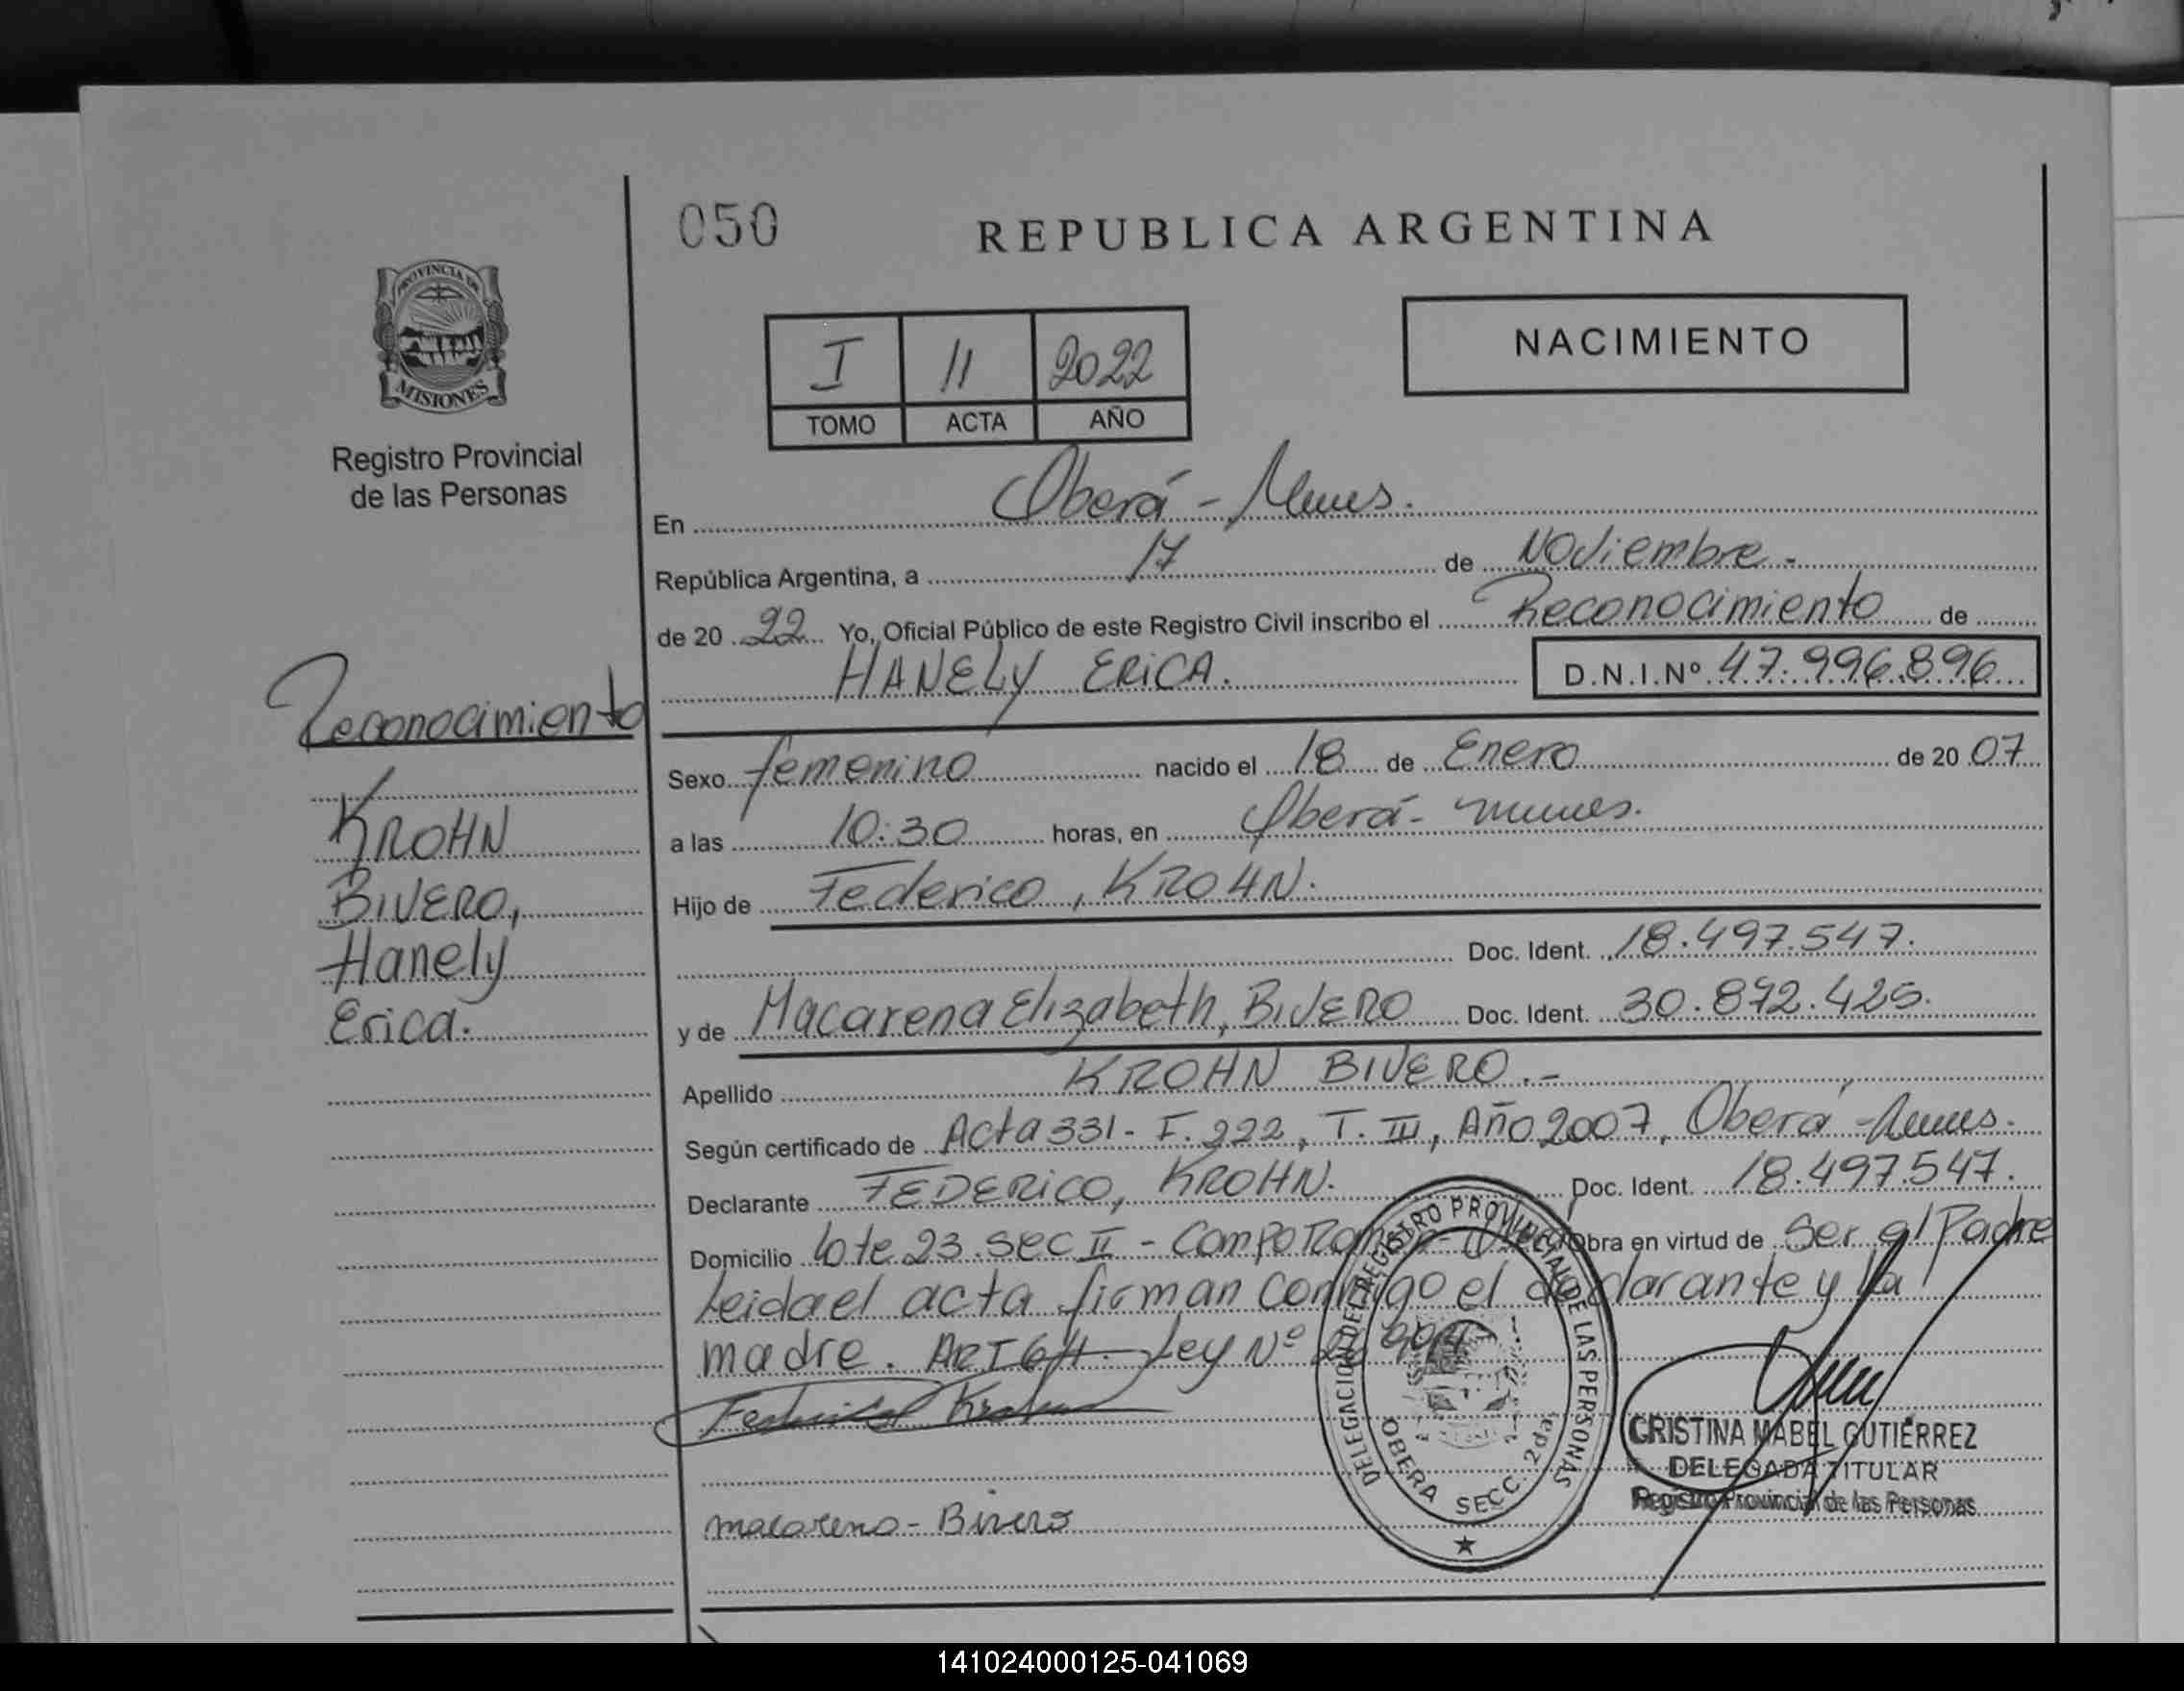 050
REPUBLICA ARGENTINA
PROVINCIA DE
MISIONES
Registro Provincial
de las Personas
I 11 2022
TOMO ACTA AÑO
NACIMIENTO
En Oberá - Mnes.
República Argentina, a 17 de Noviembre.-
de 20 22 Yo, Oficial Público de este Registro Civil inscribo el Reconocimiento de
HANELY ERICA. D.N.I.Nº 47.996.896
Reconocimiento
KROHN
BIVERO,
Hanely
Erica.
Sexo femenino nacido el 18 de Enero de 20 07
a las 10:30 horas, en Oberá - mnes.
Hijo de Federico, KROHN.
Doc. Ident. 18.497.547.
y de Macarena Elizabeth, BIVERO Doc. Ident. 30.872.425.
Apellido KROHN BIVERO.-
Según certificado de Acta 331 - F. 222, T. III, Año 2007, Oberá - Mnes.
Declarante FEDERICO, KROHN. Doc. Ident. 18.497.547.
Domicilio lote 23. sec II - Campo Ramon - Obra en virtud de Ser el Padre
Leida el acta firman conmigo el declarante y la
madre. ART 64. Ley Nº
Federico Krohn
macarena - Bivero
DELEGACION DEL REGISTRO PROVINCIAL DE LAS PERSONAS
OBERA SECC. 2da.
CRISTINA MABEL GUTIERREZ
DELEGADA TITULAR
Registro Provincial de las Personas
141024000125-041069